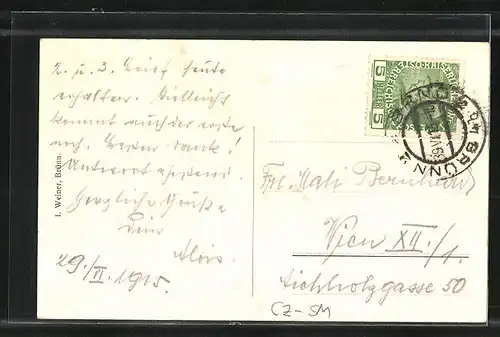 2. u. 3. Brief heute
erhalten. Vielleicht
kommt auch der erste
noch. Besten Dank!
Antwort
Herzliche Grüße
Dein
Alois.
29./II. 1915.
I. Weiner, Brünn.
5 HELLER 5
BRÜNN
Frl. Mali Bernhard
Wien XII./1.
Aichholzgasse 50
CZ-SM